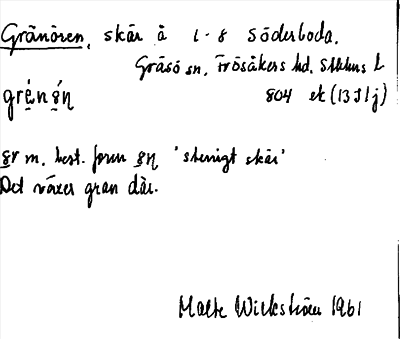 Gränören, skär å 1-8 Söderboda.
Gräsö sn, Frösåkers hd, Sthlms l
grénøń 804 ek (13J1j)
ør m. best. form øn 'stenigt skär'
Det växer gran där.
Malte Wickström 1961